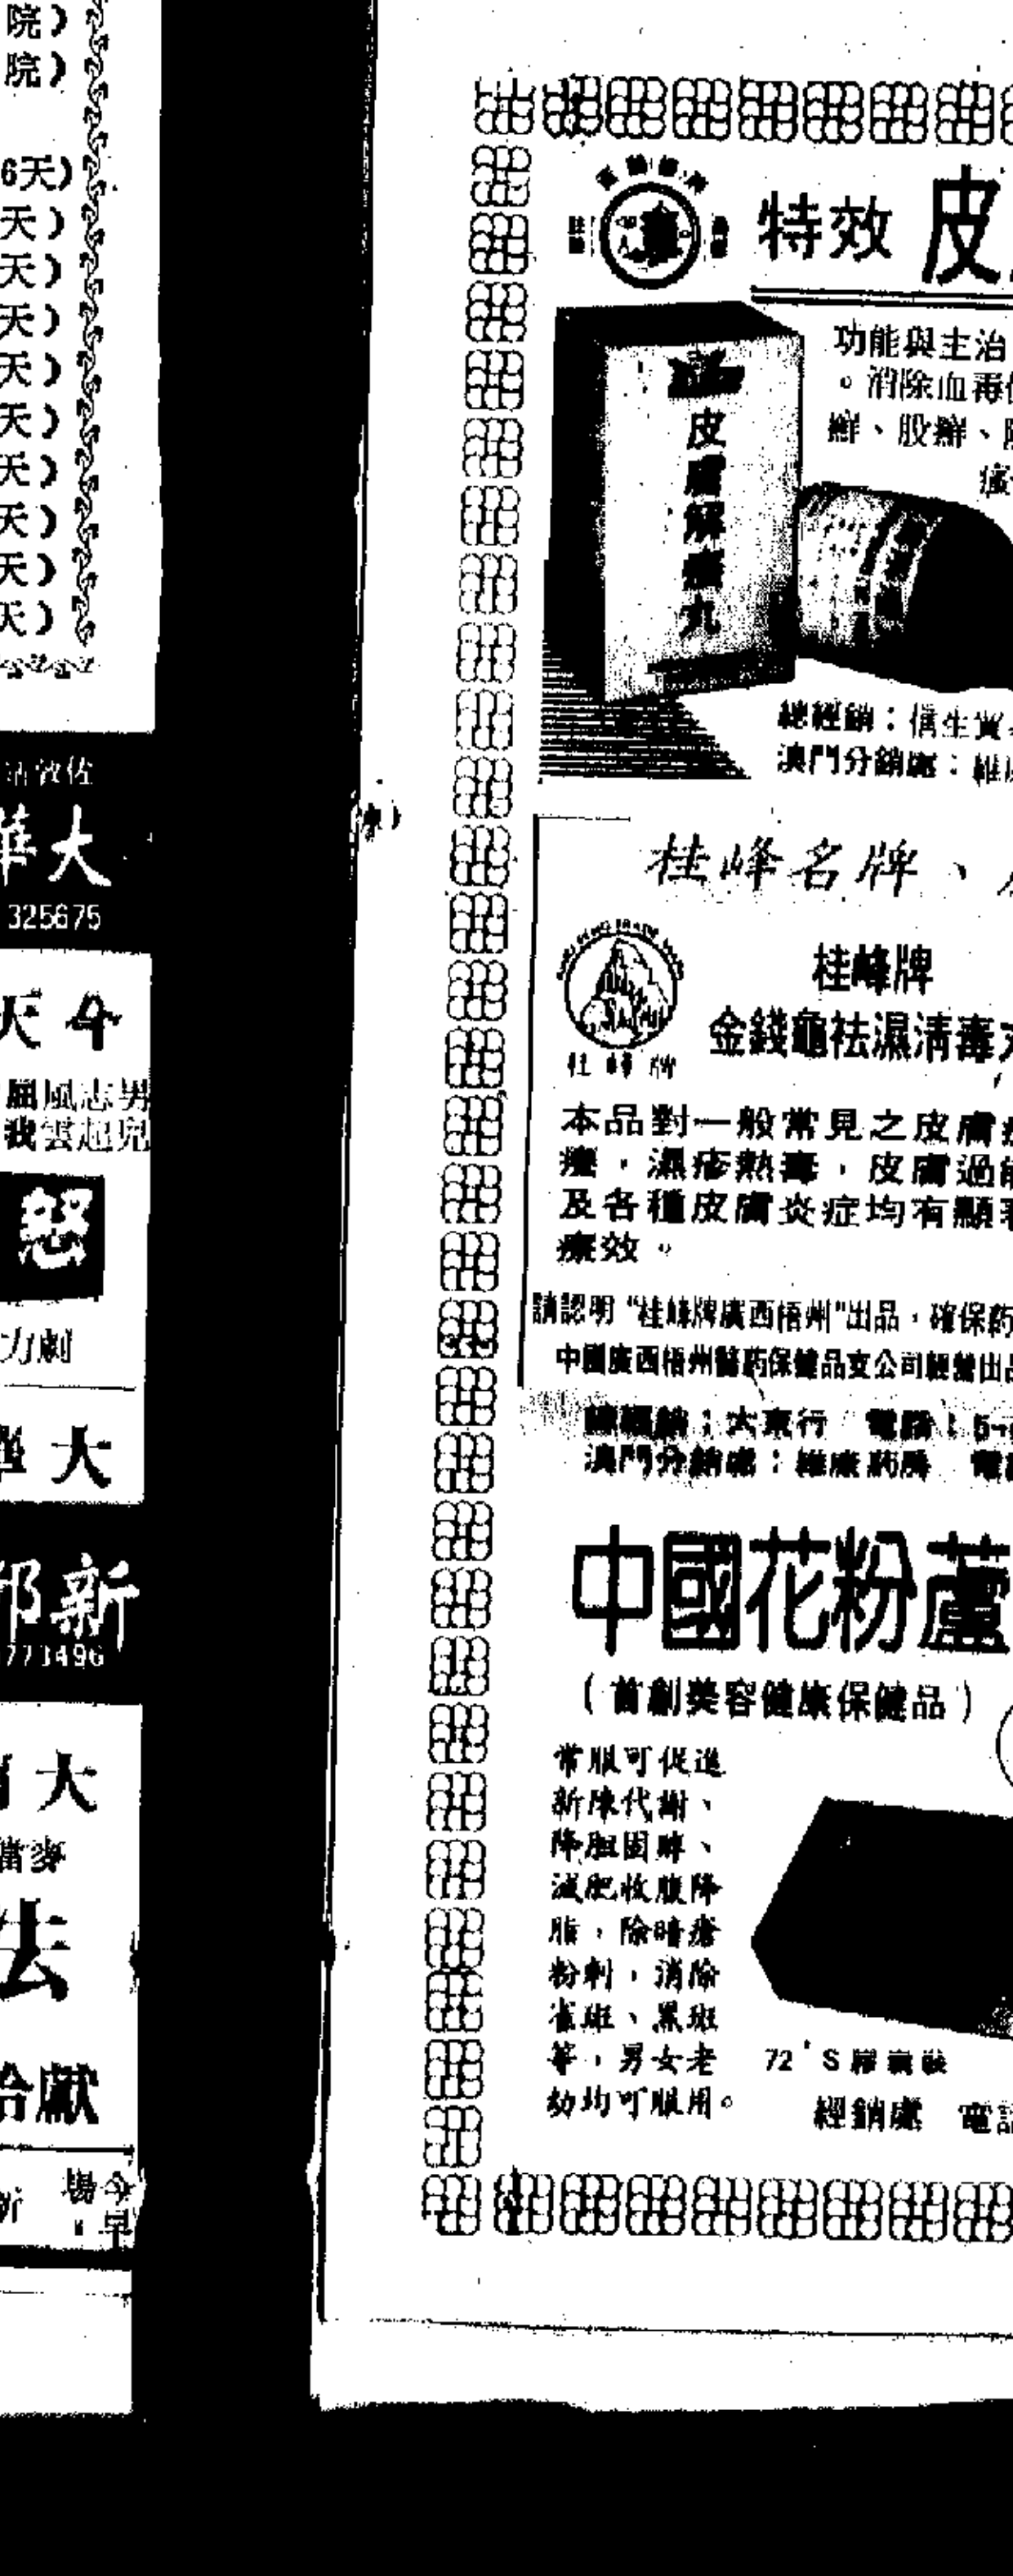 院）
院）
6天）
天）
天）
天）
天）
天）
天）
天）
天）
天）
佐敦
華大
325675
天今
屈風志男
我雲趣兒
怒
力劇
大
新
773496
大
當麥
法
給獻
今早
場
特效 皮
功能與主治
。消除血毒
癬、股癬、
皮膚解毒丸
總經銷：信生貿
澳門分銷處：維
桂峰名牌、
桂峰牌
桂峰牌
金錢龜祛濕清毒
本品對一般常見之皮膚
瘡，濕疹熱毒，皮膚過
及各種皮膚炎症均有顯
療效。
請認明“桂峰牌廣西梧州”出品，確保葯
中國廣西梧州醫葯保健品支公司經營出品
總經銷：大東行 電話：5-
澳門分銷處：維康葯房 電
中國花粉蘆
（首創美容健康保健品）
常服可促進
新陳代謝、
降胆固醇、
減肥收腹降
脂，除暗瘡
粉刺，消除
雀斑、黑斑
等，男女老
幼均可服用。
72'S膠囊裝
經銷處 電話